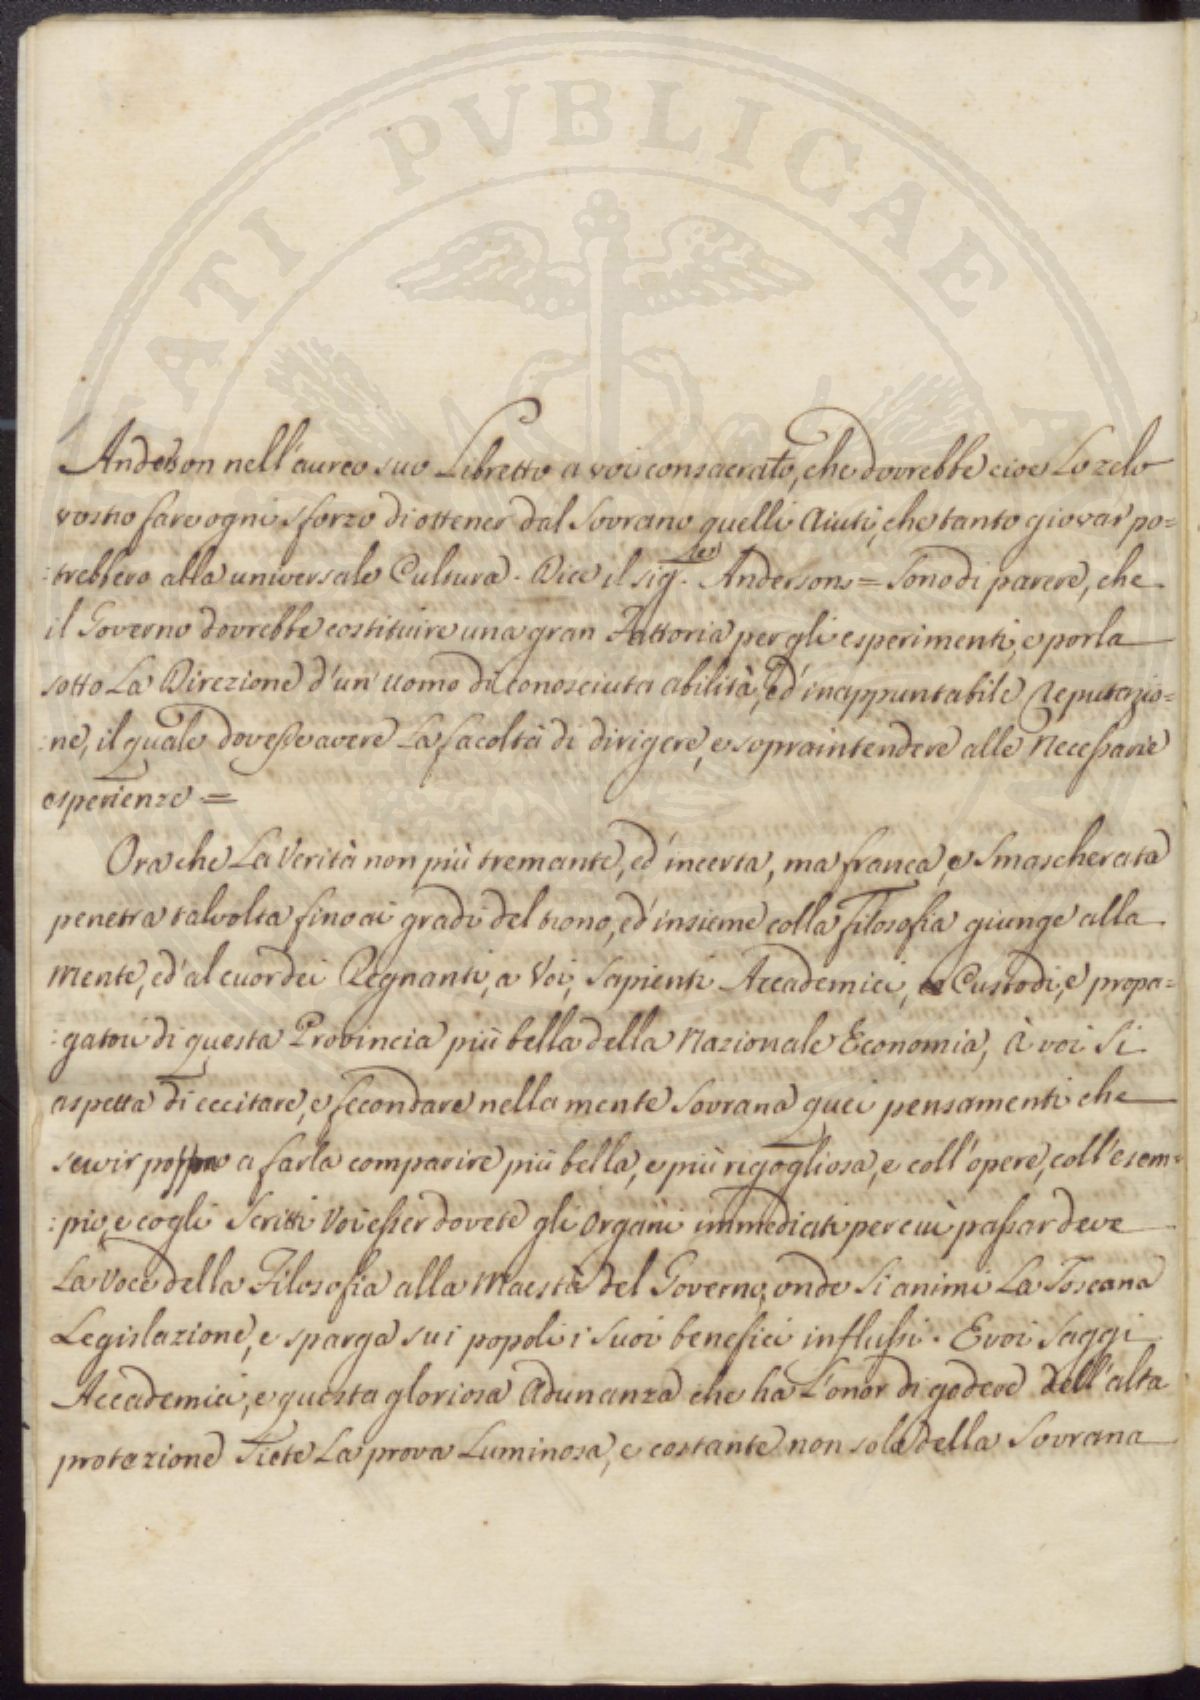 Anderson nell'aureo suo Libretto a voi consacrato, che dovrebbe cioe Lo zelo
vostro fare ogni sforzo di ottener dal Sovrano quelli Aiuti, che tanto giovar po=
:trebbero alla universale Cultura. Dice il sig.r Anderson = Sono di parere, che
il Governo dovrebbe costituire una gran Fattoria per gli esperimenti, e porla
sotto La Direzione d'un' uomo di conosciuta abilità, ed' inappuntabile Reputazio=
:ne, il quale dovesse avere La facoltà di dirigere, e sopraintendere alle Necessarie
esperienze =
Ora che La Verità non più tremante, ed' incerta, ma franca, e Smascherata
penetra talvolta fino ai gradi del trono, ed' insieme colla Filosofia giunge alla
Mente, ed' al cuor dei Regnanti, a Voi, Sapienti Accademici, Custodi, e propa=
:gatori di questa Provincia più bella della Nazionale Economia, à voi Si
aspetta di eccitare, e secondare nella mente Sovrana quei pensamenti che
servir posson a farla comparire più bella, e più rigogliosa, e coll'opere, coll'esem=
:pio, e cogli Scritti Voi esser dovete gli Organi immediati per cui passar deve
La Voce della Filosofia alla Maestà del Governo, onde Si animi La Toscana
Legislazione, e sparga sui popoli i Suoi benefici influssi. E voi Saggi
Accademici, e questa gloriosa Adunanza che ha L'onor di godere dell'alta
protezione Siete La prova Luminosa, e costante non solo della Sovrana
PVBLICAE